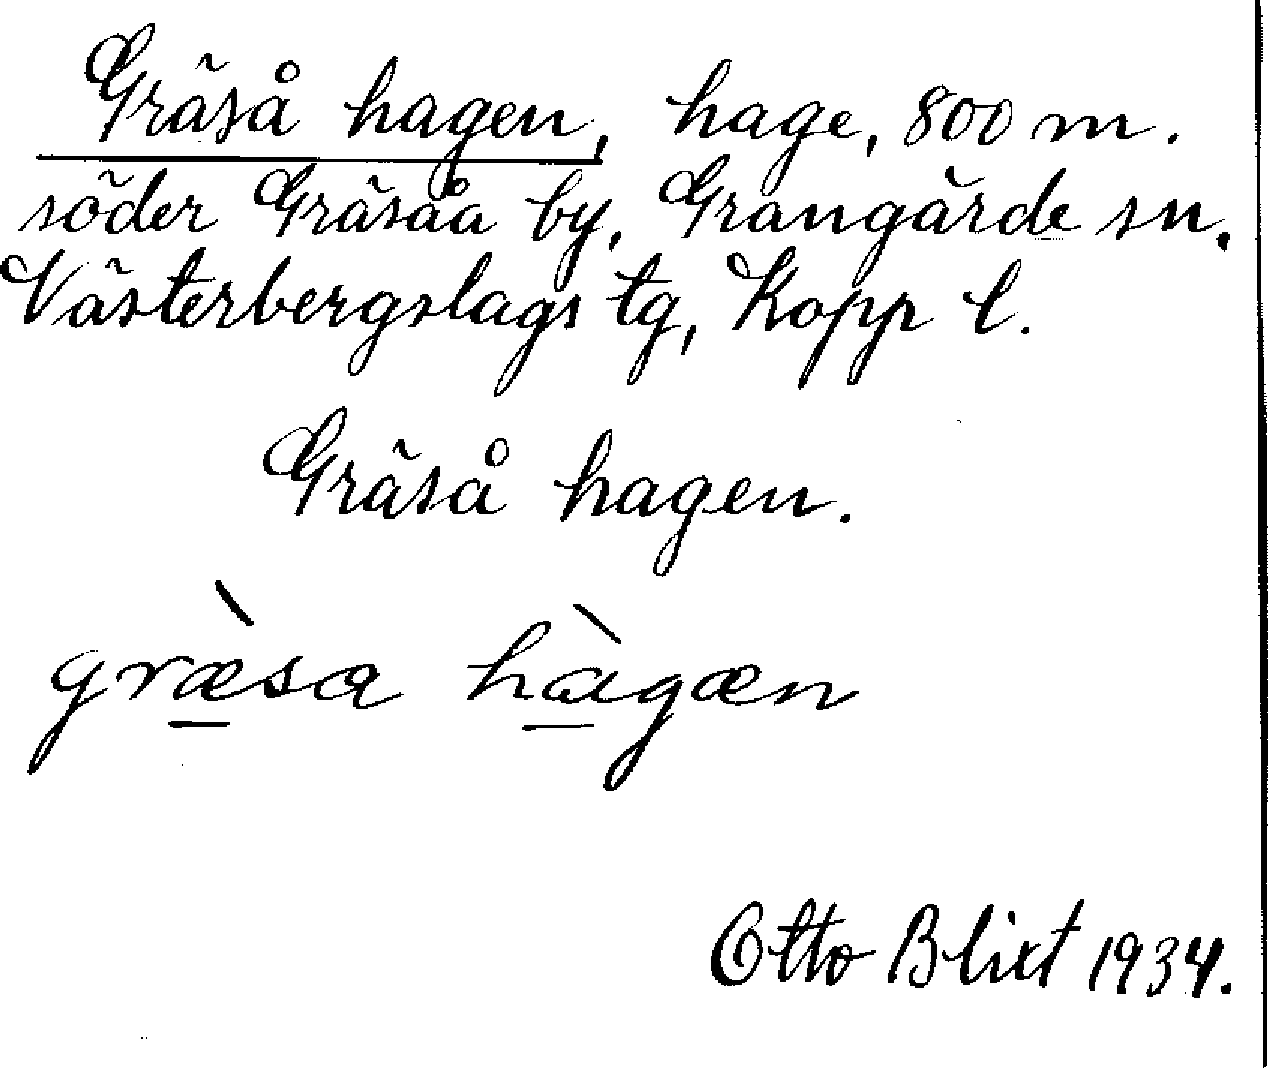 Gräså hagen, hage, 800 m.
söder Gräsåa by, Grangärde sn,
Västerbergslags tg, Kopp l.
Gräså hagen.
græ̀sa hàgæn
Otto Blixt 1934.